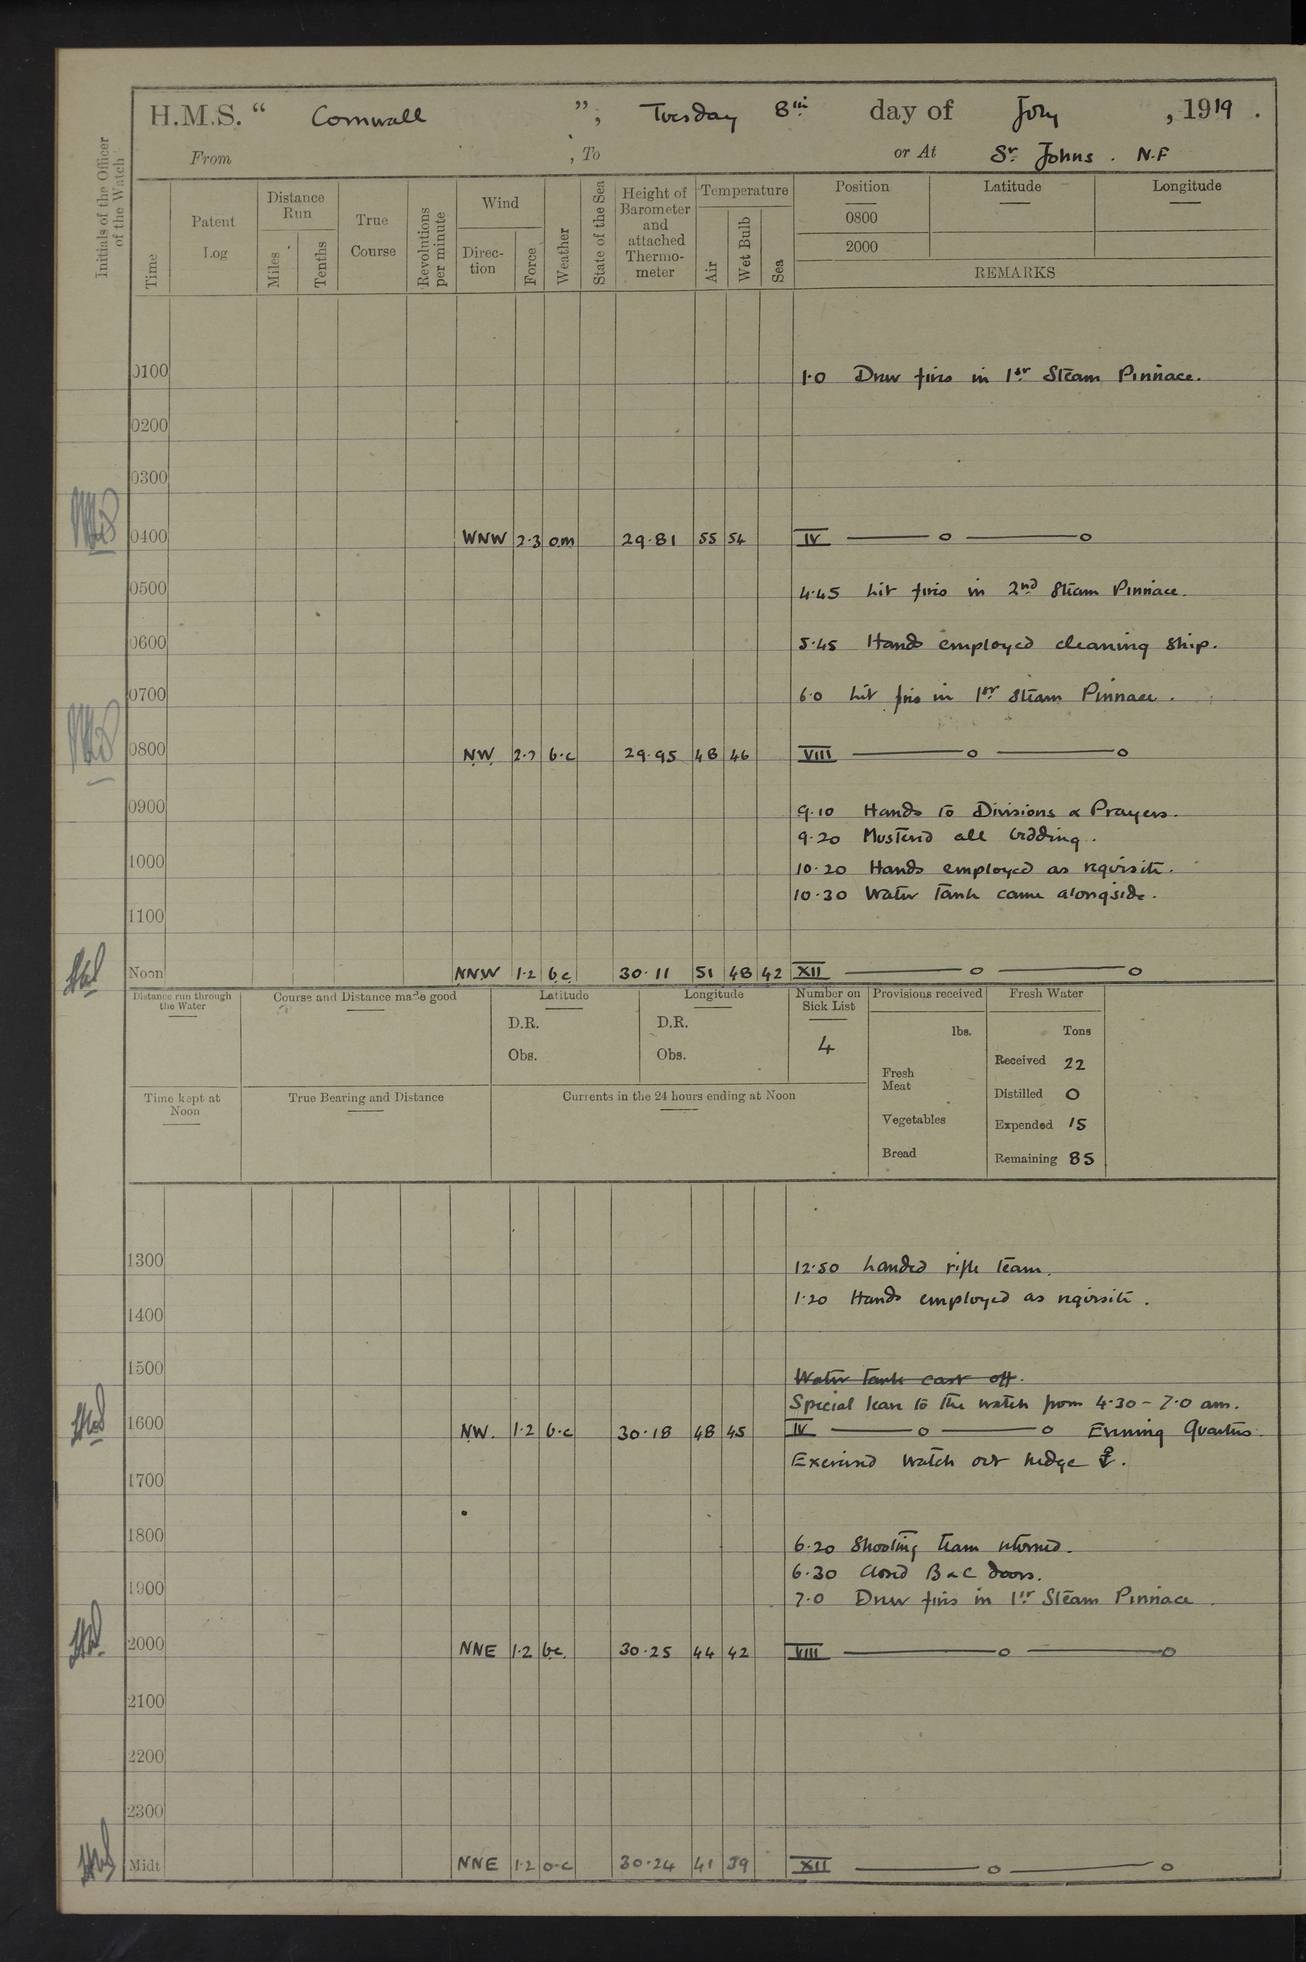 H.M.S. “ Cornwall ”, Tuesday 8th day of July, 1919.
From , To or At St. Johns. N.F
Initials of the Officer of the Watch
Time
Patent Log
Distance Run
Miles
Tenths
True Course
Revolutions per minute
Wind
Direction
Force
Weather
State of the Sea
Height of Barometer and attached Thermometer
Temperature
Air
Wet Bulb
Sea
Position Latitude Longitude
0800
2000
REMARKS
0100 1.0 Drew fires in 1st Steam Pinnace.
0200
0300
0400 WNW 2.3 o.m 29.81 55 54 IV
0500 4.45 Lit fires in 2nd Steam Pinnace.
0600 5.45 Hands employed cleaning ship.
0700 6.0 Lit fires in 1st Steam Pinnace.
0800 NW. 2.3 b.c 29.95 48 46 VIII
0900 9.10 Hands to Divisions & Prayers.
9.20 Mustered all bedding.
1000 10.20 Hands employed as requisite.
10.30 Water Tank came alongside.
1100
Noon NNW 1.2 b.c 30.11 51 48 42 XII
Distance run through the Water
Course and Distance made good
Latitude
D.R.
Obs.
Longitude
D.R.
Obs.
Number on Sick List
4
Provisions received
lbs.
Fresh Meat
Vegetables
Bread
Fresh Water
Tons
Received 22
Distilled 0
Expended 15
Remaining 85
Time kept at Noon
True Bearing and Distance
Currents in the 24 hours ending at Noon
1300 12.50 Landed rifle team.
1400 1.20 Hands employed as requisite.
1500 Water Tank cast off.
Special leave to the watch from 4.30 - 7.0 am.
1600 NW. 1.2 b.c 30.18 48 45 IV Evening Quarters.
Exercised watch out kedge ⚓.
1700
1800 6.20 Shooting team returned.
6.30 Closed B & C doors.
1900 7.0 Drew fires in 1st Steam Pinnace.
2000 NNE 1.2 bc. 30.25 44 42 VIII
2100
2200
2300
Midt NNE 1.2 o.c 30.24 41 39 XII